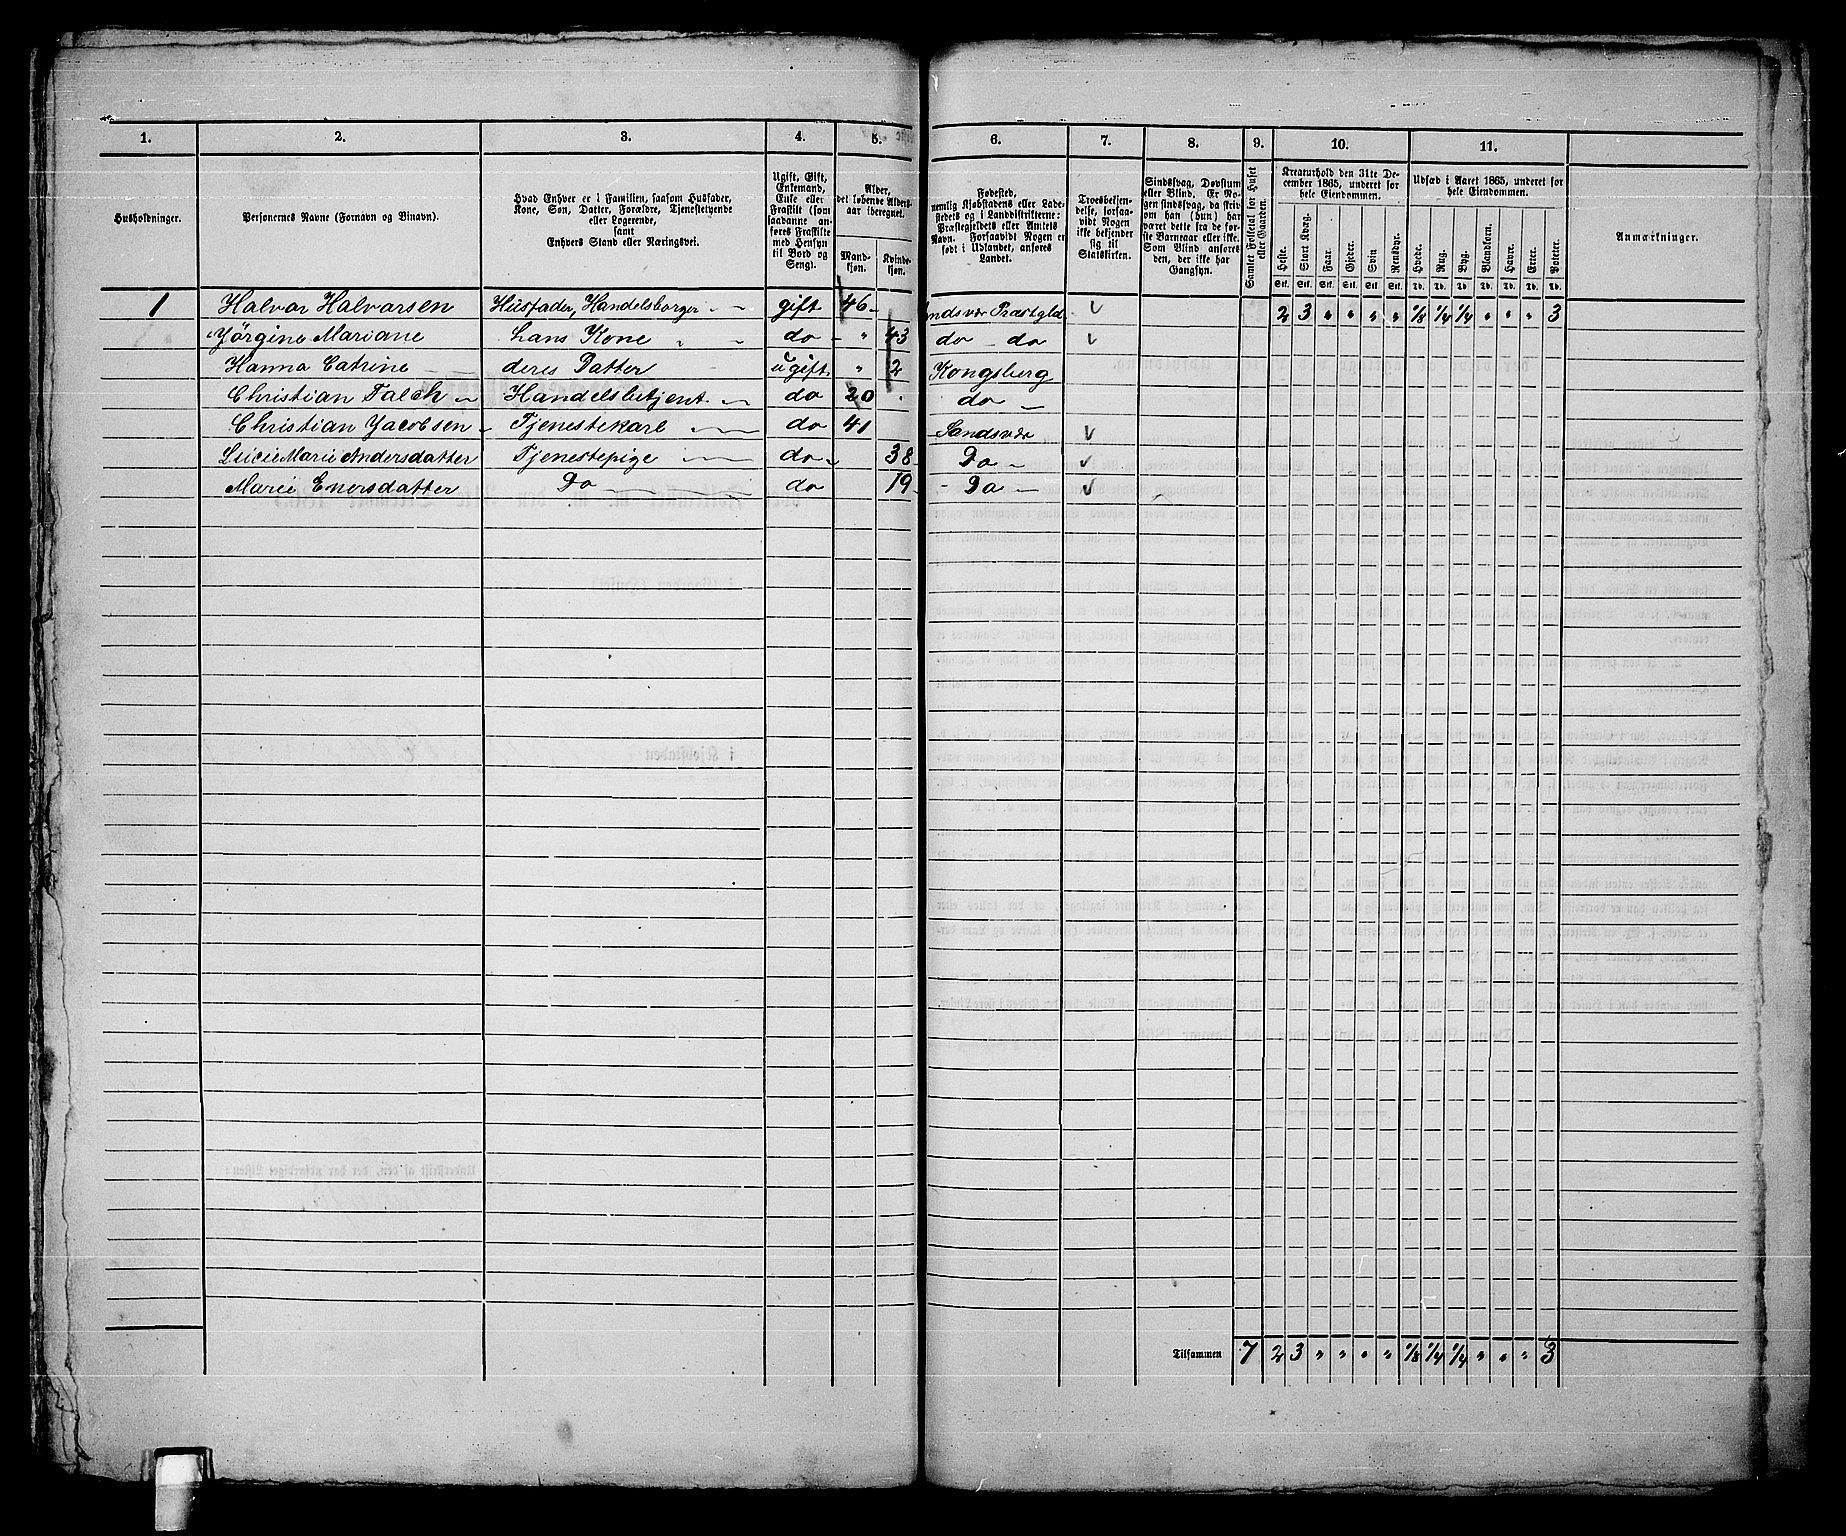 1. 2. 3. 4. 5. 6. 7. 8. 9. 10. 11.
Husholdninger.
Personernes Navne (Fornavn og Binavn).
Hvad Enhver er i Familien, saasom Husfader,
Kone, Søn, Datter, Forældre, Tjenestetyende
eller Logerende,
samt
Enhvers Stand eller Næringsvei.
Ugift, Gift,
Enkemand,
Enke eller
Fraskilt (som
saadanne an-
føres Fraskilte
med Hensyn
til Bord og
Seng).
Alder,
det løbende Alders-
aar iberegnet.
Mand-
kjøn.
Kvinde-
kjøn.
Fødested,
nemlig Kjøbstadens eller Lade-
stedets og i Landdistrikterne:
Præstegjeldets eller Amtets
Navn. Forsaavidt Nogen er
født i Udlandet, anføres
Landet.
Troesbekjen-
delse, forsaa-
vidt Nogen
ikke bekjender
sig til
Statskirken.
Sindssvag, Døvstum
eller Blind. Er No-
gen sindssvag, da skriv
om han (hun) har
været dette fra de før-
ste Barneaar eller ikke.
Som Blind anføres
den, der ikke har
Gangsyn.
Samlet Folketal for Huset
eller Gaarden.
Kreaturhold den 31te De-
cember 1865, underet for
hele Eiendommen.
Heste.
Stort Kvæg.
Faar.
Gjeder.
Svin
Rensdyr.
Stk. Stk. Stk. Stk. Stk. Stk.
Udsæd i Aaret 1865, underet for
hele Eiendommen.
Hvede.
Rug.
Byg.
Blandkorn.
Havre.
Erter.
Poteter.
Td. Td. Td. Td. Td. Td. Td.
Anmærkninger.
1 Halvar Halvarsen Husfader, Handelsborger gift 46 ndsvær Præstgld 2 3 " " " " 1/8 1/4 1/4 " " " 3
Jörgine Mariane hans Kone do " 43 do do
Hanna Catrine deres Datter ugift " 2 Kongsberg
Christian Falch Handelsbetjent do 20 do
Christian Jacobsen Tjenestekarl do 41 Sandsvær
Lucie Marie Andersdatter Tjenestepige do 38 Do
Marie Enersdatter Do do 19 Do
Tilsammen 7 2 3 " " " " 1/8 1/4 1/4 " " " 3